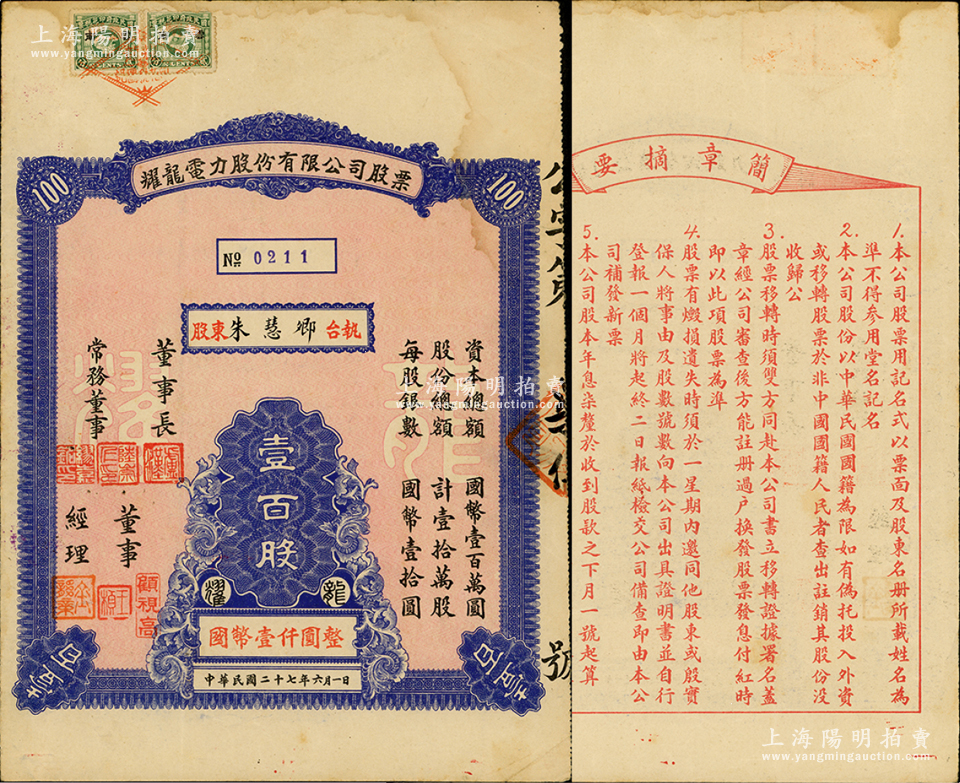 上海陽明拍賣
www.yangmingauction.com
耀龍電力股份有限公司股票
100
100
No 0211
股東朱慧卿執台
資本總額 國幣壹百萬圓
股份總額 計壹拾萬股
每股銀數 國幣壹拾圓
董事長
常務董事
董事
經理
顧視高
壹百股
耀
龍
國幣壹仟圓整
中華民國二十七年六月一日
壹百
號
上海陽明拍賣
www.yangmingauction.com
簡章摘要
1.本公司股票用記名式以票面及股東名册所載姓名為
準不得參用堂名記名
2.本公司股份以中華民國國籍為限如有偽托投入外資
或移轉股票於非中國國籍人民者查出註銷其股份没
收歸公
3.股票移轉時須雙方同赴本公司書立移轉證據署名蓋
章經公司審查後方能註册過户換發股票發息付紅時
即以此項股票為準
4.股票有燬損遺失時須於一星期內邀同他股東或殷實
保人將事由及股數號數向本公司出具證明書並自行
登報一個月將起終二日報紙檢交公司備查即由本公
司補發新票
5.本公司股本年息柒釐於收到股款之下月一號起算
上海陽明拍賣
www.yangmingauction.com